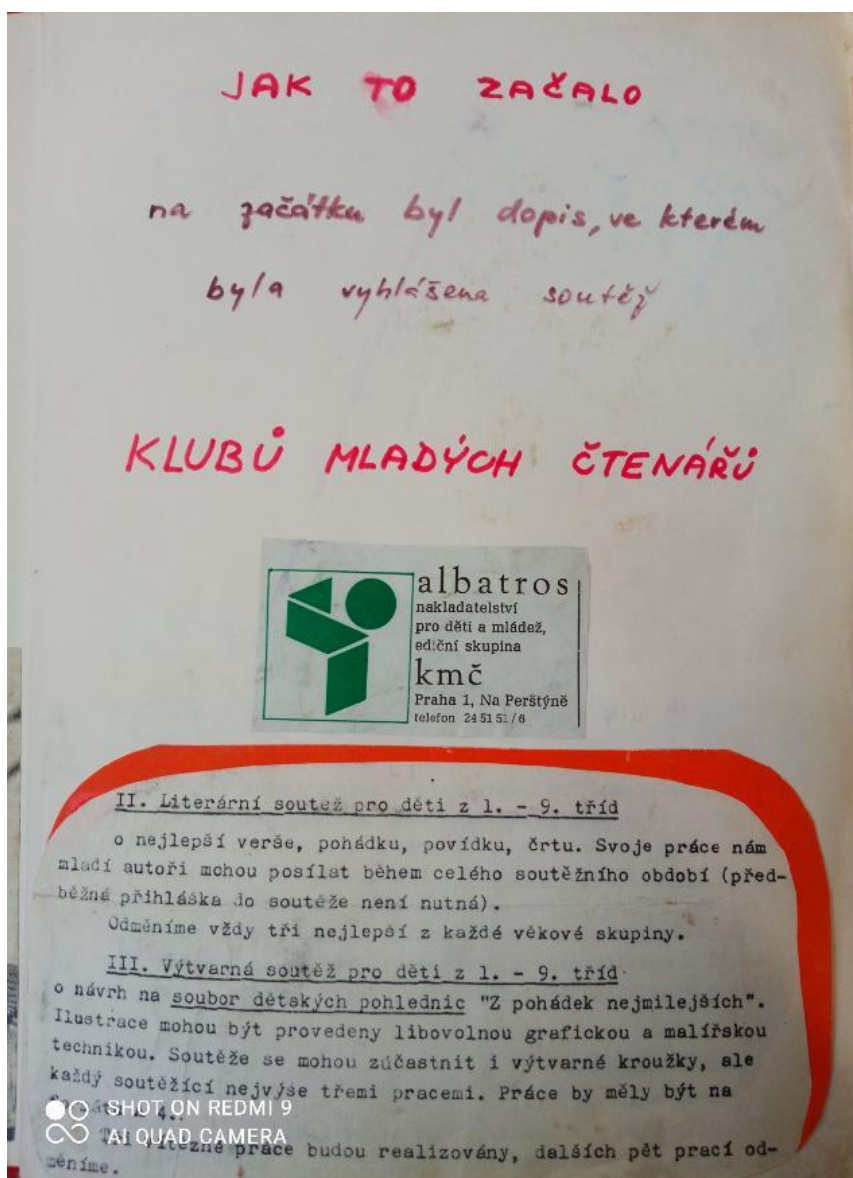 JAK TO ZAČALO
na začátku byl dopis, ve kterém
byla vyhlášena soutěž
KLUBŮ MLADÝCH ČTENÁŘŮ
albatros
nakladatelství
pro děti a mládež,
ediční skupina
kmč
Praha 1, Na Perštýně
telefon 24 51 51/6
II. Literární soutež pro děti z 1. - 9. tříd
o nejlepší verše, pohádku, povídku, črtu. Svoje práce nám
mladí autoři mohou posílat během celého soutěžního období (před-
běžná přihláška do soutěže není nutná).
Odměníme vždy tři nejlepší z každé věkové skupiny.
III. Výtvarná soutěž pro děti z 1. - 9. tříd
o návrh na soubor dětských pohlednic "Z pohádek nejmilejších".
Ilustrace mohou být provedeny libovolnou grafickou a malířskou
technikou. Soutěže se mohou zúčastnit i výtvarné kroužky, ale
každý soutěžící nejvýše třemi pracemi. Práce by měly být na
4.
SHOT ON REDMI 9
AI QUAD CAMERA
vítězné práce budou realizovány, dalších pět prací od-
měníme.